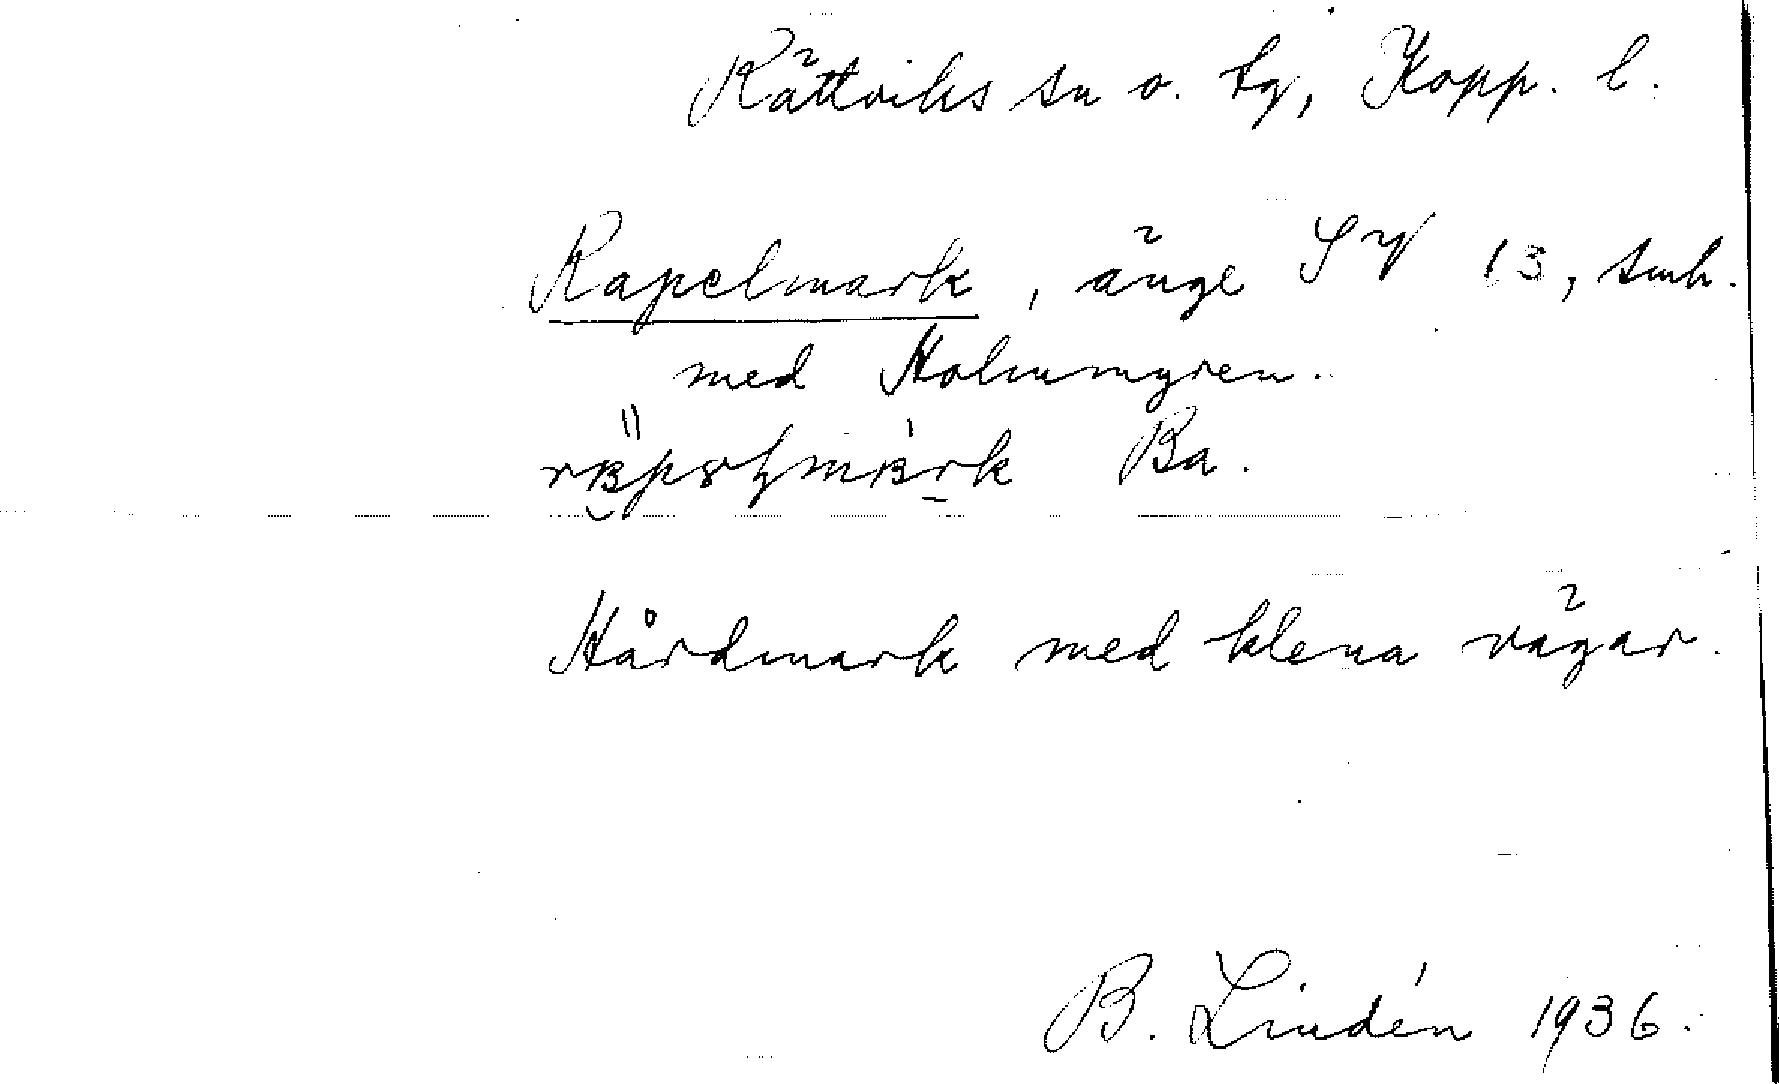 Rättviks sn o. tg, Kopp. l.
Rapelmark, änge SV 13, smh.
med Holmmyren.
Ba.
Hårdmark med klena vägar.
B. Lindén 1936.